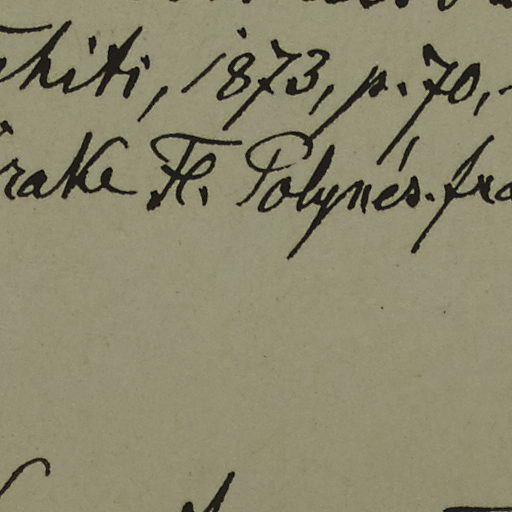 hiti, 1873, p. 70,
rake Fl. Polynés. fra